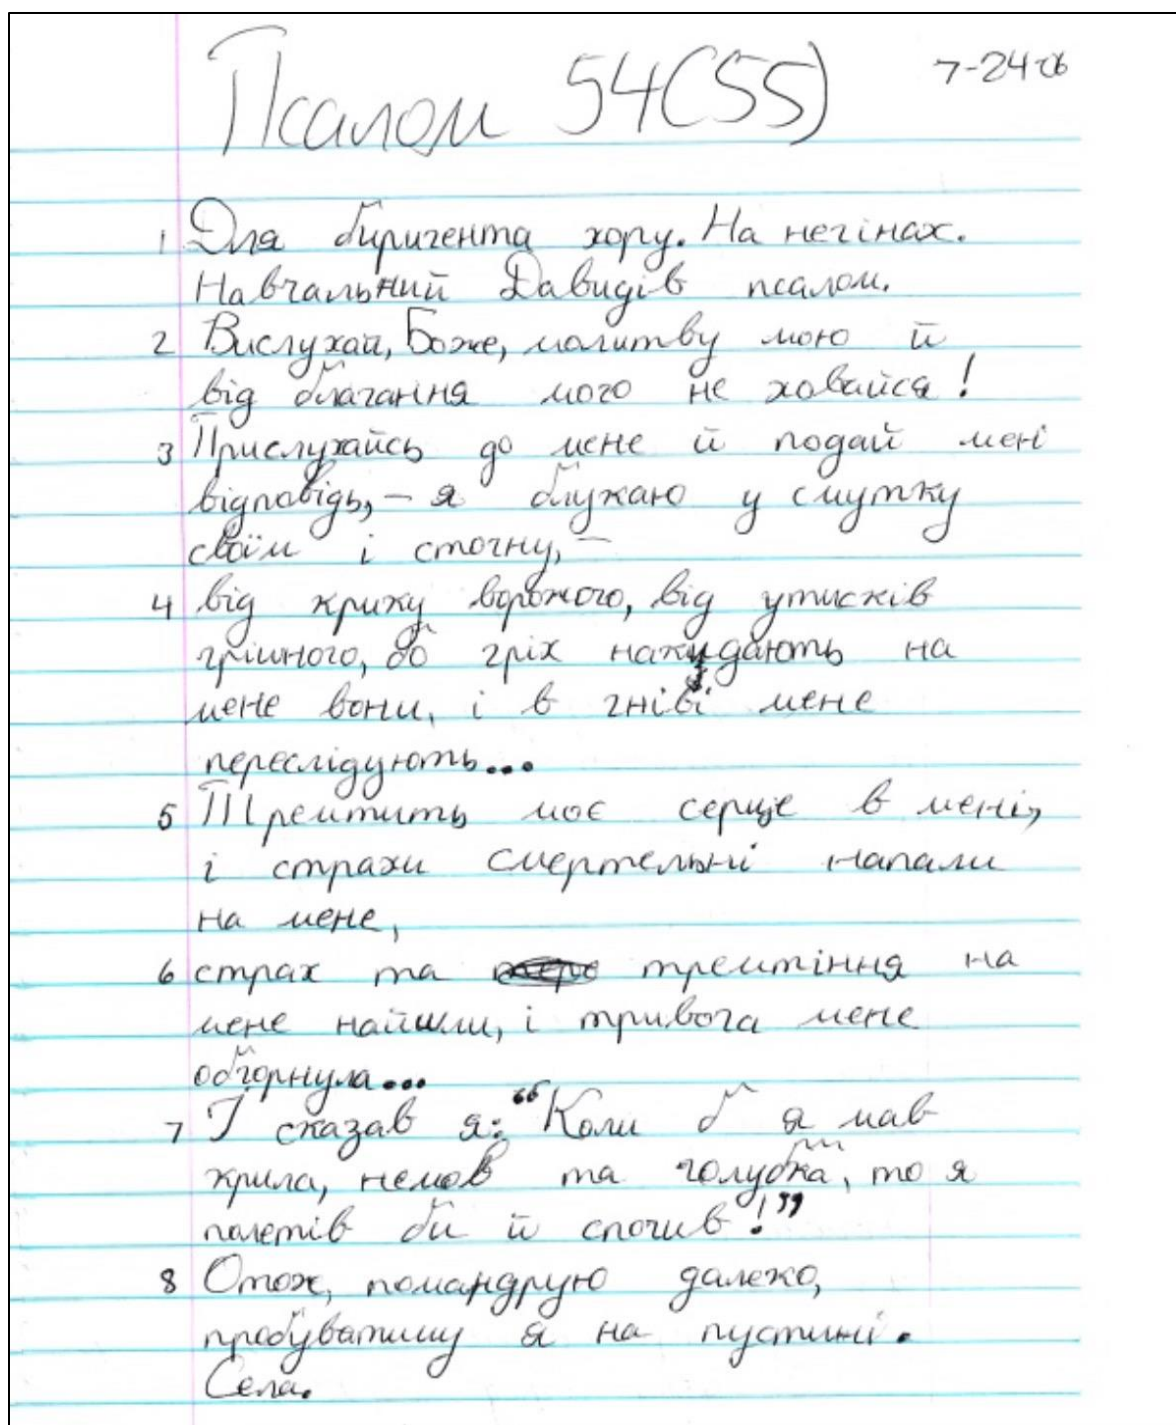 Псалом 54(55) 7-24-06
1 Для диригента хору. На негінах.
Навчальний Давидів псалом.
2 Вислухай, Боже, молитву мою й
від благання мого не ховайся!
3 Прислухайсь до мене й подай мені
відповідь, – я блукаю у смутку
своїм і стогну, –
4 від крику ворожого, від утисків
грішного, бо гріх накидають на
мене вони, і в гніві мене
переслідують...
5 Тремтить моє серце в мені,
і страхи смертельні напали
на мене,
6 страх та тремтіння на
мене найшли, і тривога мене
обгорнула...
7 І сказав я: “Коли б я мав
крила, немов та голубка, то я
полетів би й спочив!”
8 Отож, помандрую далеко,
пробуватиму я на пустині.
Села.